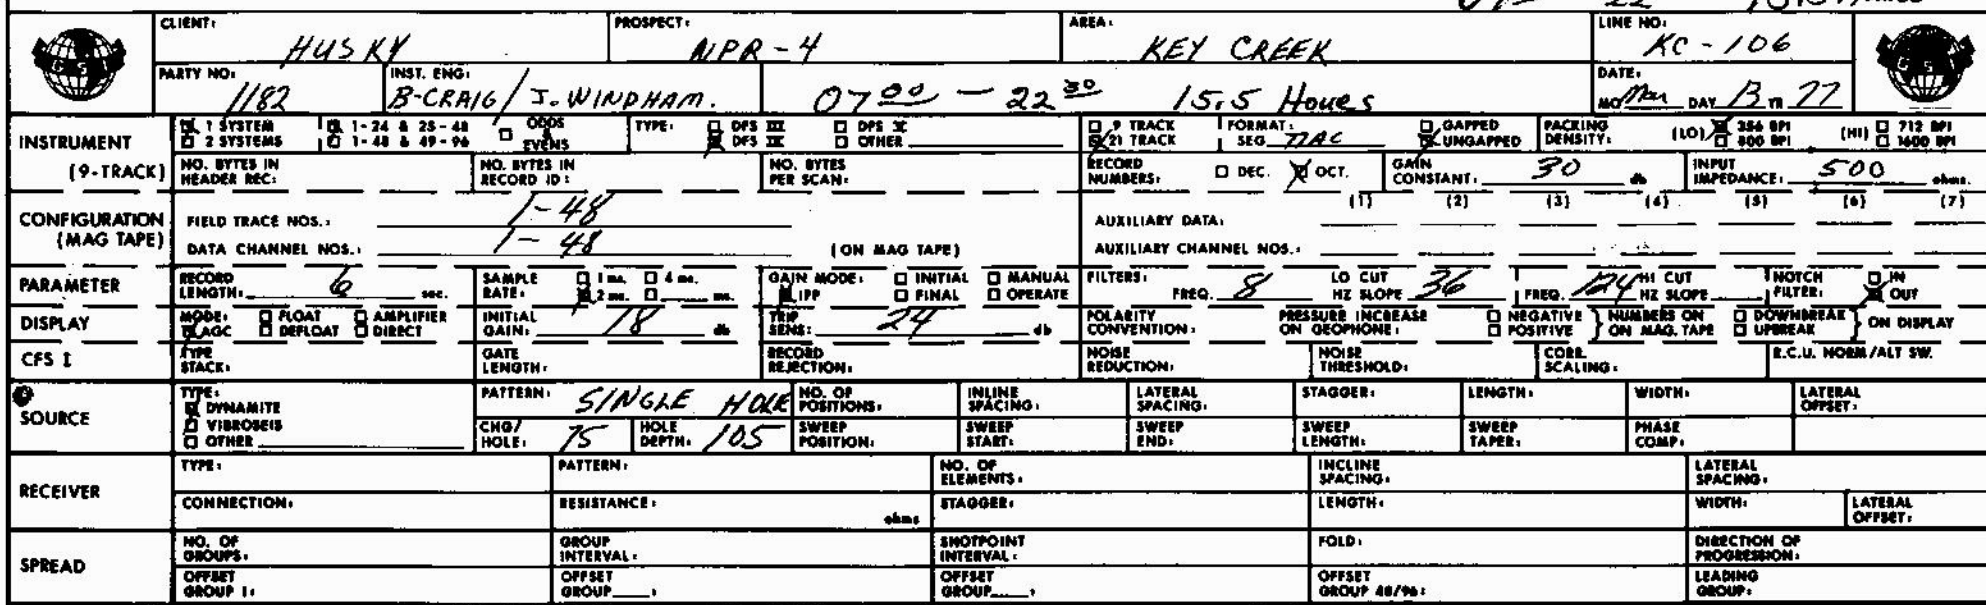 CLIENT: HUSKY PROSPECT: NPR-4 AREA: KEY CREEK LINE NO: KC-106
PARTY NO: 1182 INST. ENG: B-CRAIG / J. WINDHAM. 07 00 - 22 30 15.5 Hours DATE: MO Mar DAY 13 YR 77
GSI
INSTRUMENT (9-TRACK)
1 SYSTEM 1-24 & 25-48 ODDS & EVENS TYPE: DFS III DFS V 9 TRACK FORMAT: GAPPED PACKING DENSITY: (LO) 356 BPI (HI) 712 BPI
2 SYSTEMS 1-48 & 49-96 DFS IV OTHER 21 TRACK SEG TIAC UNGAPPED 800 BPI 1600 BPI
NO. BYTES IN HEADER REC: NO. BYTES IN RECORD ID: NO. BYTES PER SCAN: RECORD NUMBERS: DEC. OCT. GAIN CONSTANT: 30 db INPUT IMPEDANCE: 500 ohms.
CONFIGURATION (MAG TAPE)
FIELD TRACE NOS.: 1-48 AUXILIARY DATA: (1) (2) (3) (4) (5) (6) (7)
DATA CHANNEL NOS.: 1-48 (ON MAG TAPE) AUXILIARY CHANNEL NOS.:
PARAMETER
RECORD LENGTH: 6 sec. SAMPLE RATE: 1 ms. 4 ms. 2 ms. ms. GAIN MODE: INITIAL MANUAL IFP FINAL OPERATE FILTERS: FREQ. 8 LO CUT HZ SLOPE 36 FREQ. 124 HI CUT HZ SLOPE NOTCH FILTER: IN OUT
DISPLAY
MODE: FLOAT AMPLIFIER AGC DEFLOAT DIRECT INITIAL GAIN: 18 db TRIP SENS: 24 db POLARITY CONVENTION: PRESSURE INCREASE ON GEOPHONE: NEGATIVE POSITIVE NUMBERS ON ON MAG. TAPE DOWNBREAK UPBREAK ON DISPLAY
CFS I
TYPE STACK: GATE LENGTH: RECORD REJECTION: NOISE REDUCTION: NOISE THRESHOLD: CORR. SCALING: R.C.U. NORM/ALT SW.
SOURCE
TYPE: DYNAMITE VIBROSEIS OTHER
PATTERN: SINGLE HOLE NO. OF POSITIONS: INLINE SPACING: LATERAL SPACING: STAGGER: LENGTH: WIDTH: LATERAL OFFSET:
CHG/HOLE: 75 HOLE DEPTH: 105 SWEEP POSITION: SWEEP START: SWEEP END: SWEEP LENGTH: SWEEP TAPER: PHASE COMP:
RECEIVER
TYPE: PATTERN: NO. OF ELEMENTS: INCLINE SPACING: LATERAL SPACING:
CONNECTION: RESISTANCE: ohms STAGGER: LENGTH: WIDTH: LATERAL OFFSET:
SPREAD
NO. OF GROUPS: GROUP INTERVAL: SHOTPOINT INTERVAL: FOLD: DIRECTION OF PROGRESSION:
OFFSET GROUP 1: OFFSET GROUP : OFFSET GROUP : OFFSET GROUP 48/96: LEADING GROUP: